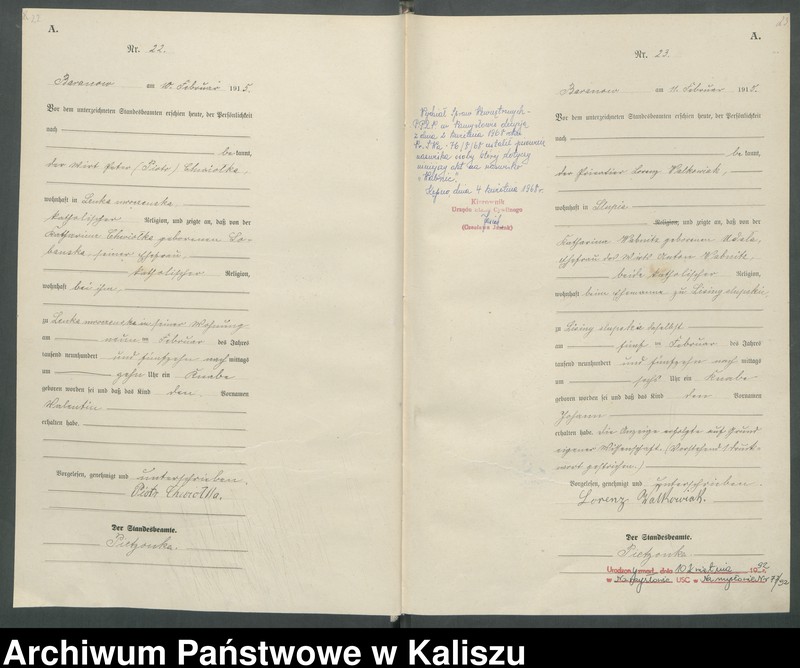 A.
Nr. 22.
Baranow am 10. Februar 1915.
Vor dem unterzeichneten Standesbeamten erschien heute, der Persönlichkeit
nach
bekannt,
der Wirt Peter (Piotr) Chwiolka,
wohnhaft in Lenka mroczenska
katholischer Religion, und zeigte an, daß von der
Katharina Chwiolka geborenen
seiner Ehefrau,
katholischer Religion,
wohnhaft bei ihm,
zu Lenka mroczenska in seiner Wohnung
am neun ten Februar des Jahres
tausend neunhundert und fünfzehn nachmittags
um zehn Uhr ein Knabe
geboren worden sei und daß das Kind den Vornamen
Walentin
erhalten habe.
Vorgelesen, genehmigt und unterschrieben.
Piotr Chwiołka.
Der Standesbeamte.
Pietzonka.
A.
Nr. 23.
Baranow am 11. Februar 1915.
Vor dem unterzeichneten Standesbeamten erschien heute, der Persönlichkeit
nach
bekannt,
der Lorenz Walkowiak,
wohnhaft in Slupia
Religion, und zeigte an, daß von der
Katharina Wabnitz geborenen
Ehefrau des Wirts Anton Wabnitz
beide katholischer Religion,
wohnhaft beim Ehemanne zu
zu daselbst
am fünf ten Februar des Jahres
tausend neunhundert und fünfzehn nachmittags
um sechs Uhr ein Knabe
geboren worden sei und daß das Kind den Vornamen
Johann
erhalten habe. Die Anzeige erfolgte auf Grund
eigener Wissenschaft. (Vorstehend 1 Druck-
wort gestrichen.)
Vorgelesen, genehmigt und unterschrieben.
Lorenz Walkowiak.
Der Standesbeamte.
Pietzonka.
Wydział Spraw Wewnętrznych
z dnia 2 kwietnia 1968 roku
nazwiska osoby której dotyczy
niniejszy akt na nazwisko
Kępno, dnia 4 kwietnia 1968 r.
Kierownik
Urzędu Stanu Cywilnego
Archiwum Państwowe w Kaliszu